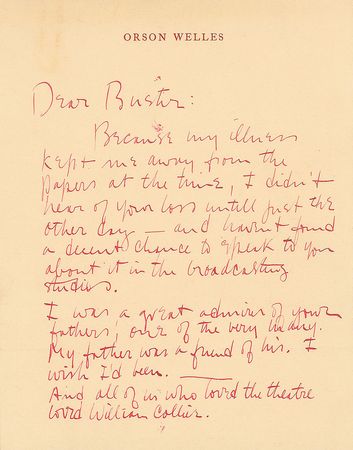 ORSON WELLES
Dear Buster:
Because my illness
kept me away from the
papers at the time, I didn't
hear of your loss untill just the
other day — and havn't found
a decent chance to speak to you
about it in the broadcasting
studios.
I was a great admirer of your
fathers', one of the very many.
My father was a friend of his. I
wish I'd been.
And all of us who loved the theatre
loved William Collier.